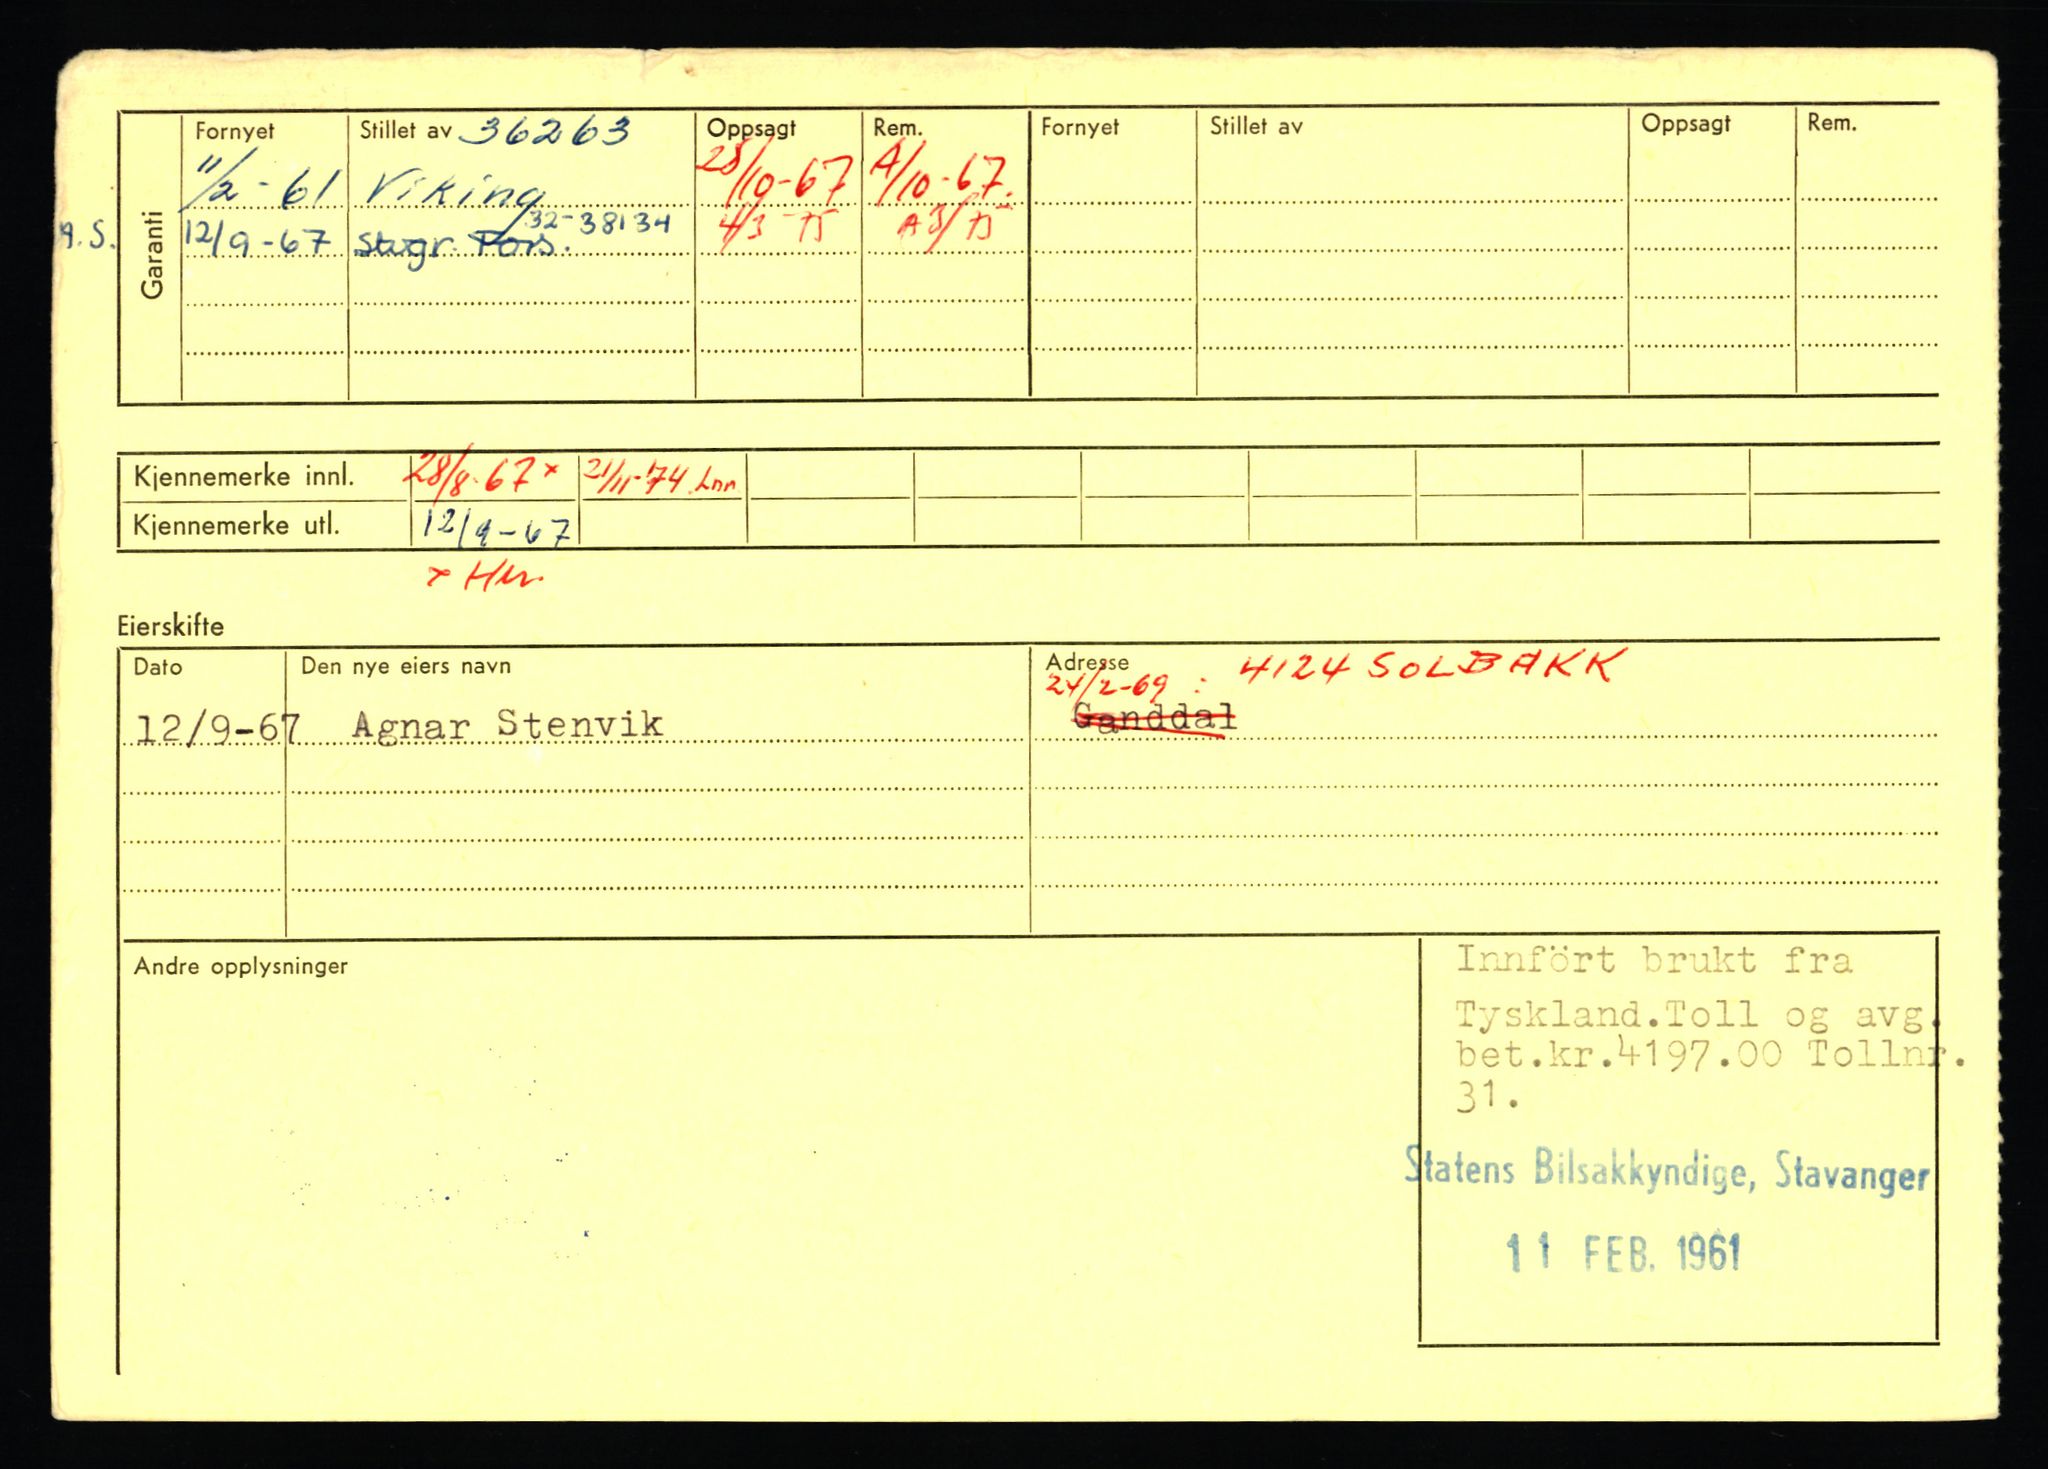 Garanti
Fornyet Stillet av 36263 Oppsagt Rem. Fornyet Stillet av Oppsagt Rem.
11/2-61 Viking 28/10-67 A/10-67.
A.S. 12/9-67 Stvgr. Fors. 32-38134 4/3 75 A3/75
Kjennemerke innl. 28/8-67 x 21/11-74 Lnn
Kjennemerke utl. 12/9-67
x
Eierskifte
Dato Den nye eiers navn Adresse 4124 SOLBAKK
24/2-69 :
12/9-67 Agnar Stenvik Ganddal
Andre opplysninger
Innfört brukt fra
Tyskland.Toll og avg.
bet.kr.4197.00 Tollnr.
31.
Statens Bilsakkyndige, Stavanger
11 FEB. 1961